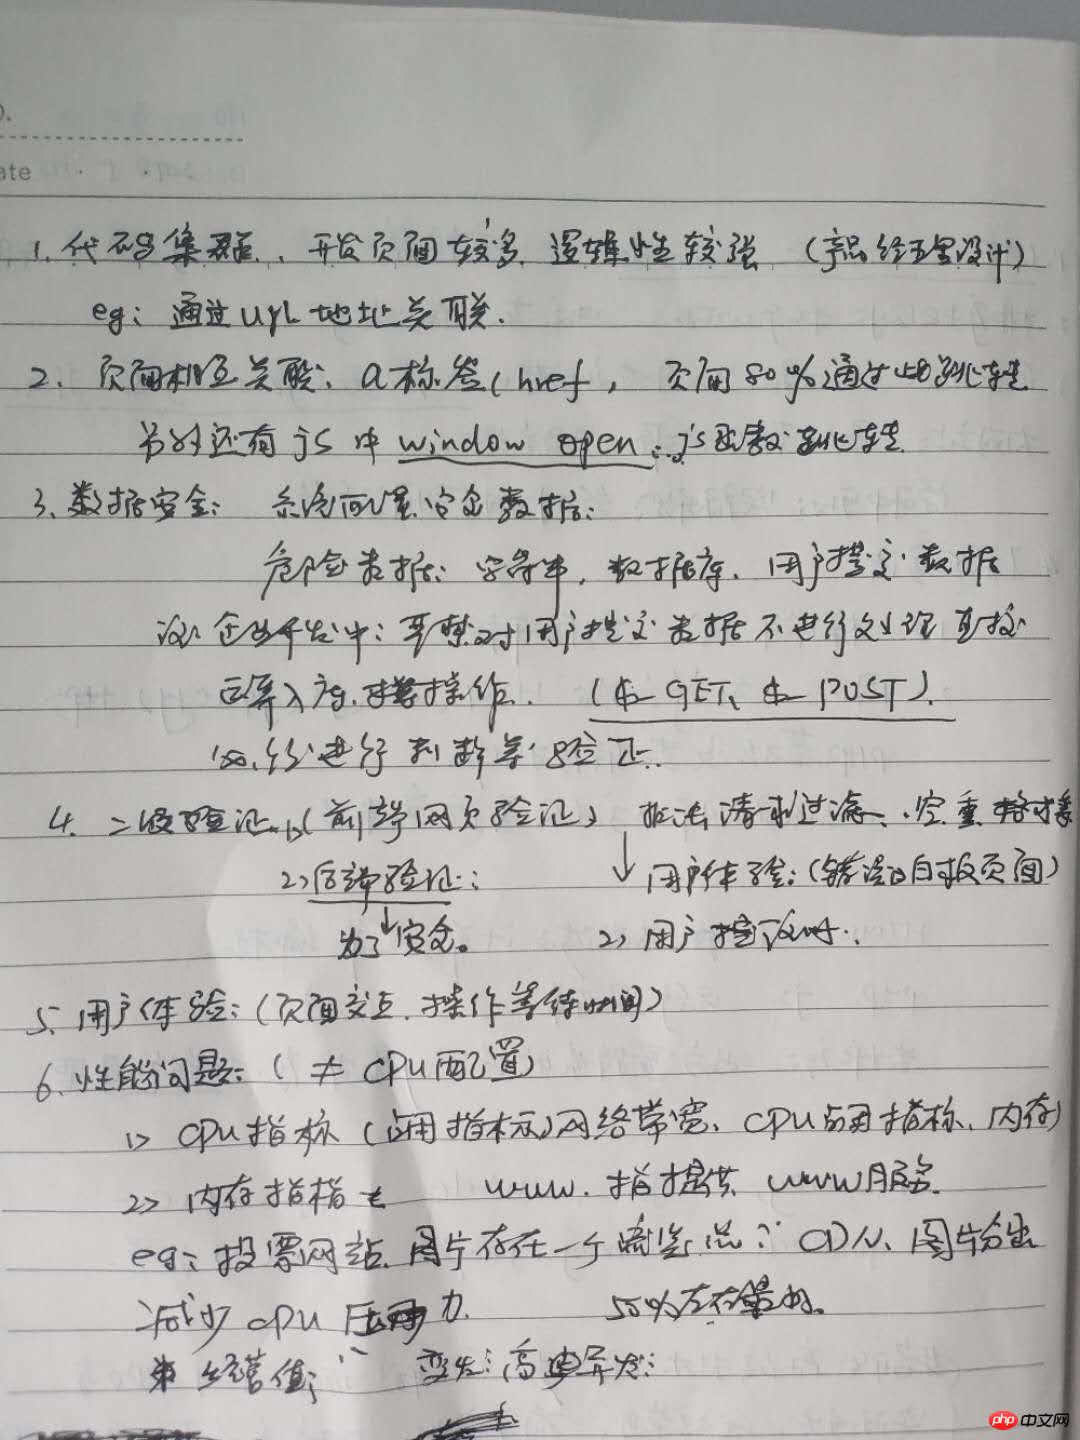 ate
1. 代码集群、开发页面较多 逻辑性较强 (产品经理设计)
eg: 通过url 地址关联.
2. 页面相互关联: a标签(href, 页面80%通过此跳转
另外还有js中window open: js函数跳转
3. 数据安全: 安全数据:
危险数据: 字符串, 数据库、用户提交数据
企业开发中: 严禁对用户提交数据不进行处理直接
入库 操作. ($_GET、$_POST).
进行判断等验证.
4. 二级验证 1>(前端网页验证) 非法请求过滤、空重
2>后端验证: ↓ 用户体验: (错误 白板页面)
为了安全。 2) 用户
5. 用户体验: (页面交互、操作等待时间)
6. 性能问题: ( ≠ CPU配置)
1> CPU指标 (占用指标)网络带宽、CPU占用指标、内存)
2> 内存指 www. 指提供 www服务.
eg: 投票网站 图片存在一个 CDN、图片
减少CPU压力. 50%左右
经营值; 高 并发:
php 中文网